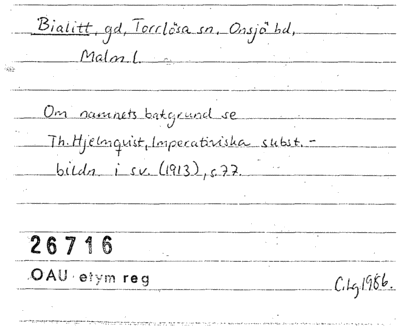 Bialitt, gd, Torrlösa sn, Onsjö hd,
Malm. l.
Om namnets bakgrund se
Th. Hjelmquist, Imperativiska subst.-
bildn. i sv. (1913), s. 77.
26716
OAU etym reg
C. Lg 1986.